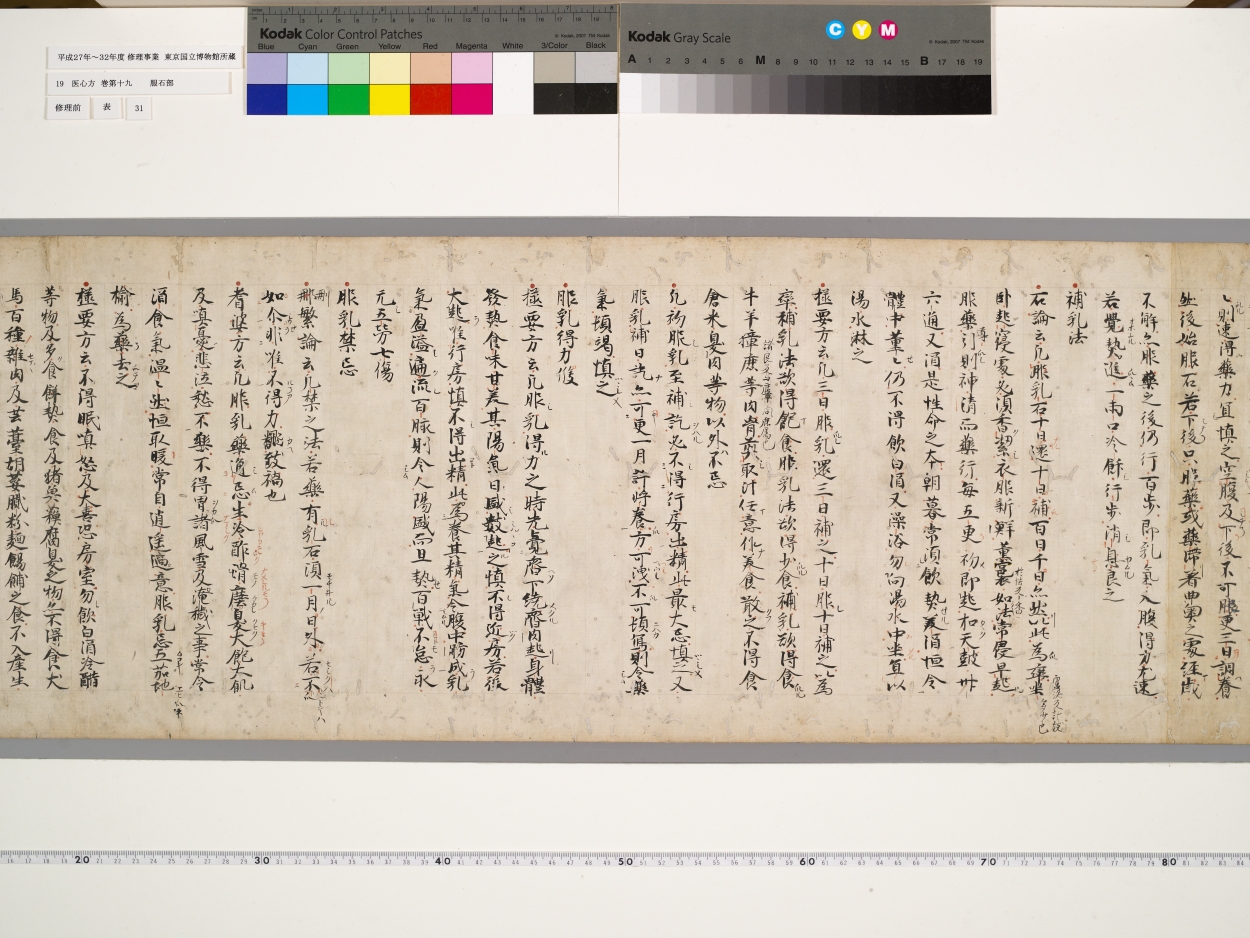 平成27年～32年度 修理事業 東京国立博物館所蔵
19 医心方 巻第十九 服石部
修理前 表 31
Kodak Color Control Patches
Blue Cyan Green Yellow Red Magenta White 3/Color Black
Kodak Gray Scale
C Y M
A 1 2 3 4 5 6 M 8 9 10 11 12 13 14 15 B 17 18 19
則速得藥力宜慎之空腹及下後不可服更三日調養
然後始服石若下後只服藥或藥滯着曲奧之處經歲
不解凡服藥之後仍行百步即乳氣入腹得力尤速
若覺熱進一兩口冷餘行步消息良之
補乳法
石論云凡服乳石十日還十日補百日千日亦然此為
卧起寢處爇須香絜衣服新鮮薰裛如法常侵早起
服藥引則神清而藥行每五更初即起和天鼓卅
六通又酒是性命之本朝暮常須飲熱美酒恒令
體中薰薰仍不得飲白酒又澡浴勿向湯水中坐宜以
湯水淋之
極要方云凡三日服乳還三日補之十日服十日補之以為
率補乳法欲得飽食服乳法欲得少食補乳欲得食
牛羊獐鹿等肉骨煎取汁任意作美食散之不得食
倉米臭肉等物以外不忌
凡初服乳至補訖必不得行房出精此最大忌慎之又
服乳補日訖亦可更一月許將養方可洩不可頓寫則令藥
氣頓竭慎之
服乳得力候
極要方云凡服乳得力之時先覺齊下繞齊肉起身體
發熱食味甘美其陽氣日盛數起之慎不得近房若後
大起唯行房慎不得出精此為養其精氣令腹中物成乳
氣盈溢通流百脉則令人陽盛而且熱百戰不怠永
元五勞七傷
服乳禁忌
刪繁論云凡禁之法若藥有乳石須一月日外若不
如尒非准不得力翻致禍也
耆婆方云凡服乳藥通忌生冷酢滑塵臭大飽大飢
及嗔憂悲泣愁不樂不得冒諸風雪及淹穢之事常令
酒食氣溫溫然恒取暖常自逍遙適意服乳忌五茄地
榆為藥去之
極要方云不得眠嗔怒及大喜恐房室勿飲白酒冷醋
等物及多食餅熱食及猪魚蒜腐臭之物亦不得食犬
馬百種雜肉及芸薹胡荽膩粉麵餳餔之食不入產生
20 30 40 50 60 70 80